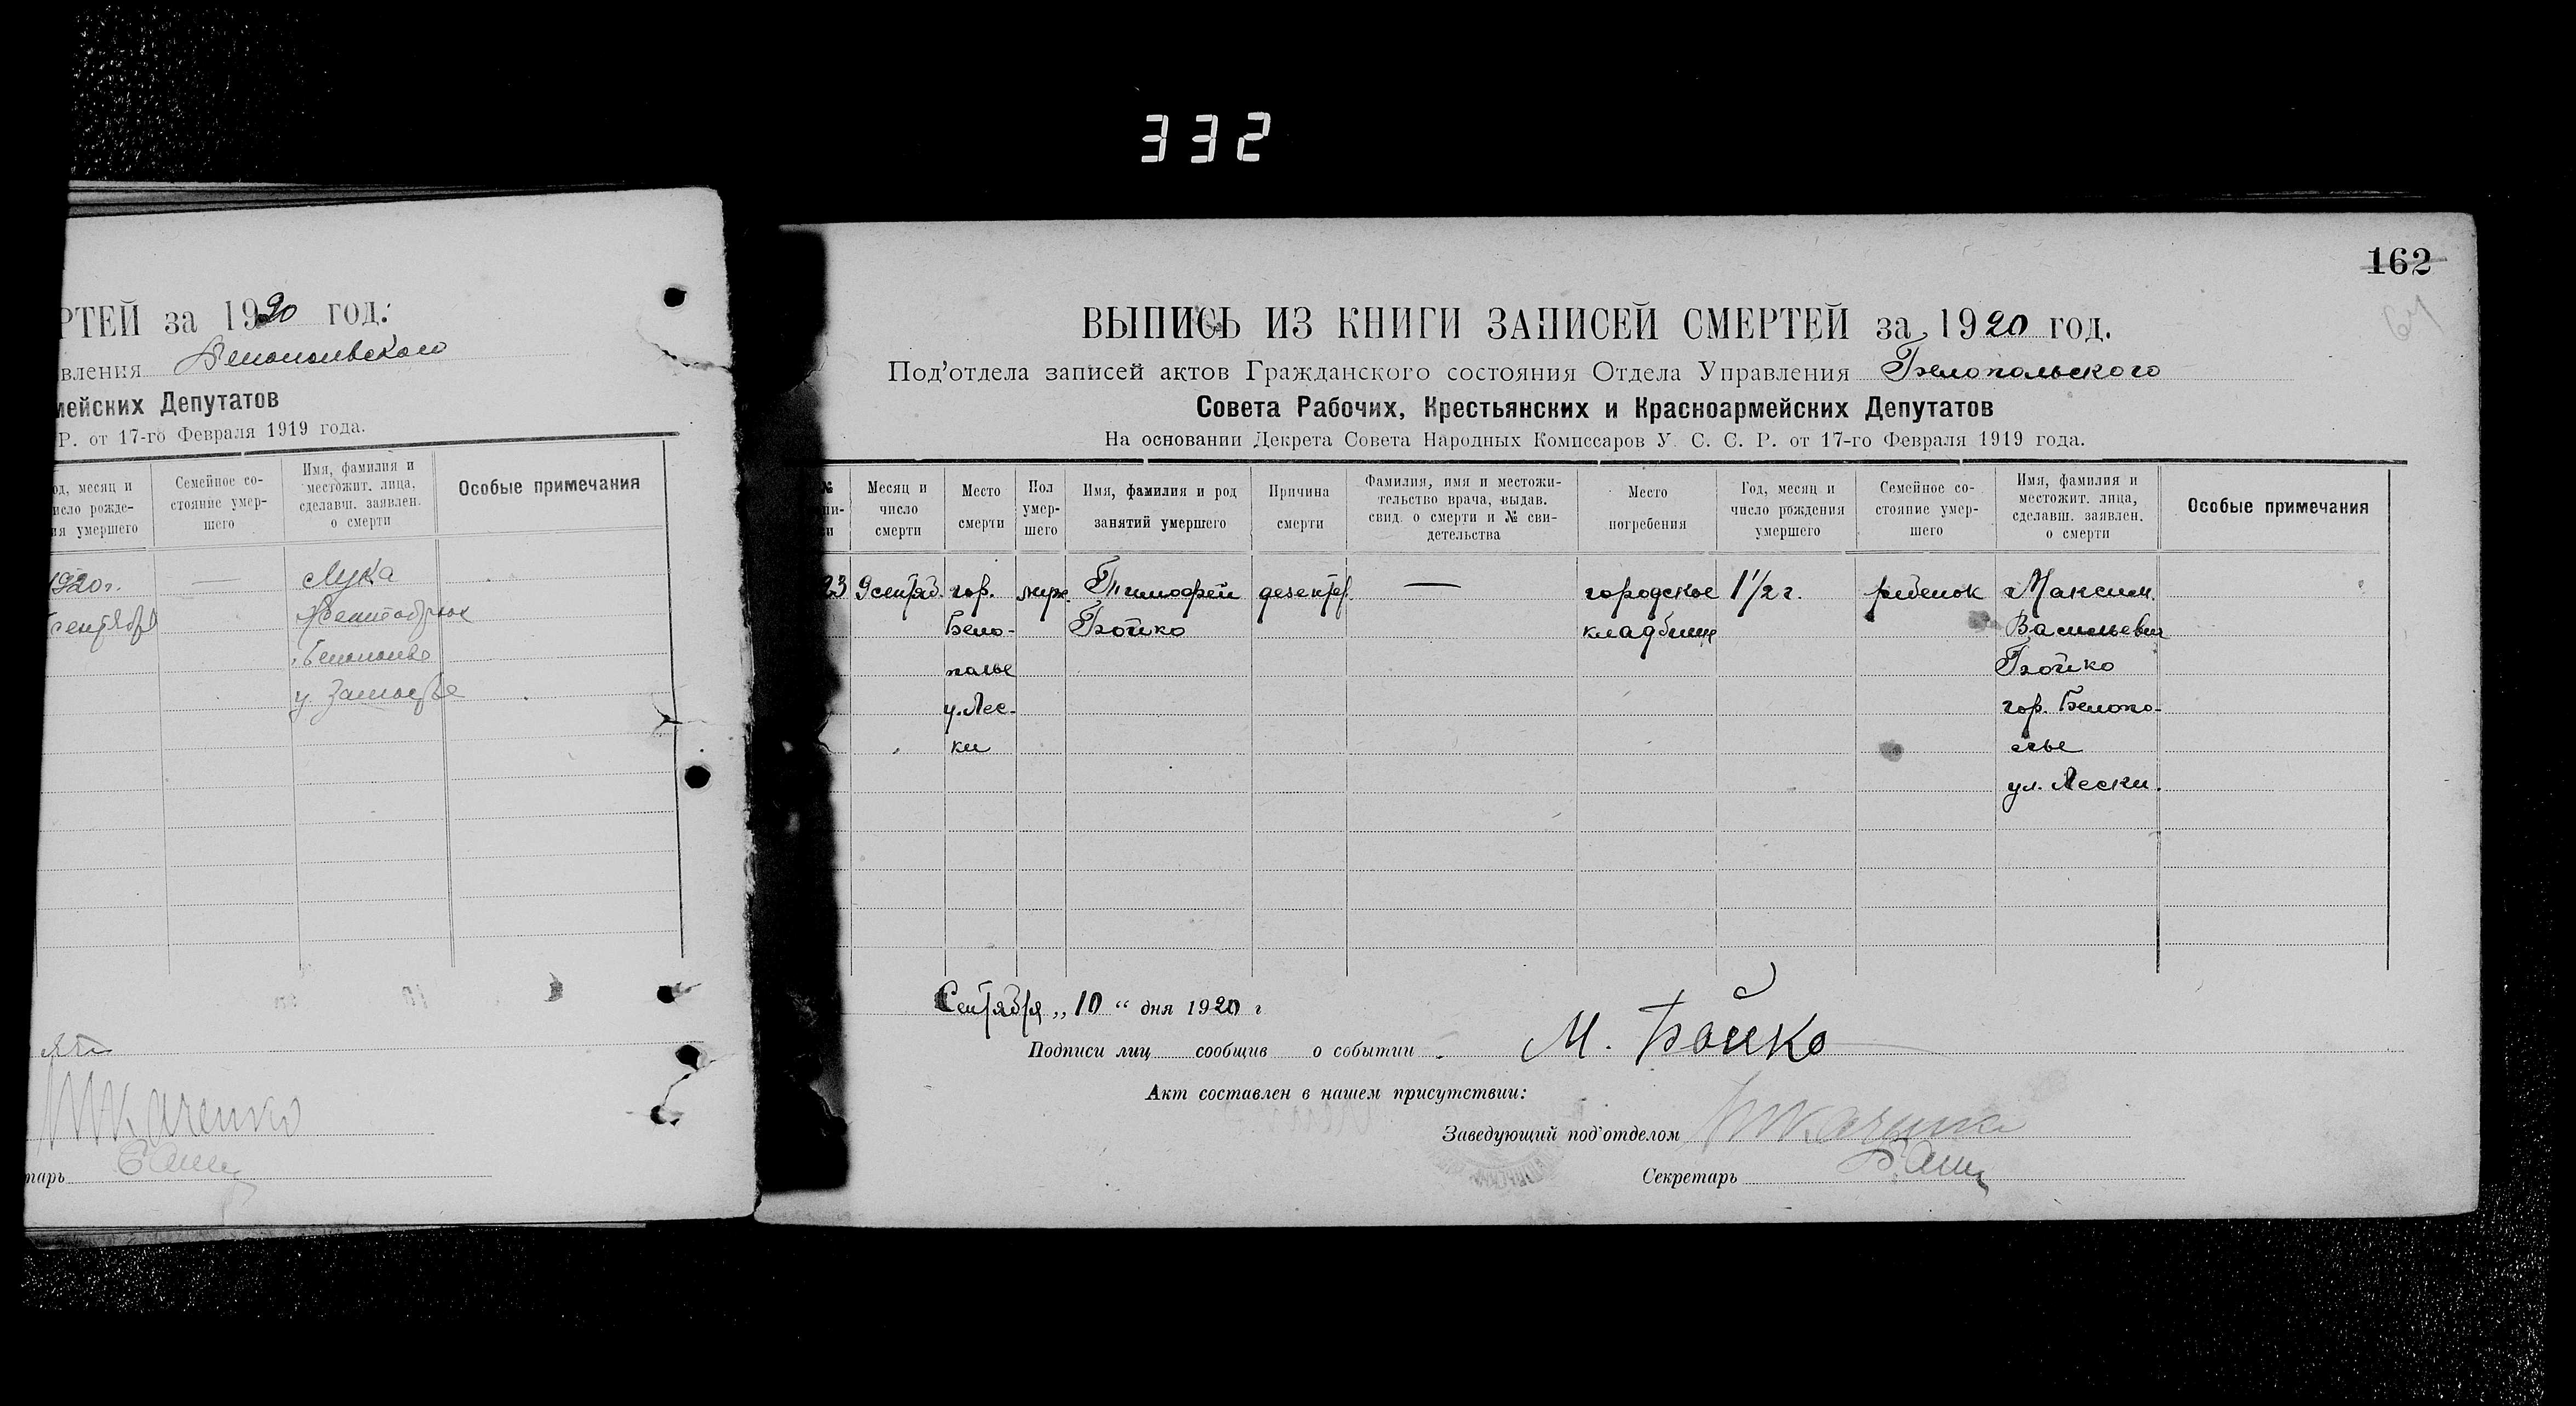 332
РТЕЙ за 1920 год.
вления Белопольского
мейских Депутатов
Р. от 17-го Февраля 1919 года.
од, месяц и
исло рожде-
ия умершего
Семейное со-
стояние умер-
шего
Имя, фамилия и
местожит. лица,
сделавш. заявлен.
о смерти
Особые примечания
1920 г.
сентября
—
Лука
Белополье
у. Замостье
тарь
162
64
ВЫПИСЬ ИЗ КНИГИ ЗАПИСЕЙ СМЕРТЕЙ за 1920 год.
Под’отдела записей актов Гражданского состояния Отдела Управления Белопольского
Совета Рабочих, Крестьянских и Красноармейских Депутатов
На основании Декрета Совета Народных Комиссаров У. С. С. Р. от 17-го Февраля 1919 года.
№
пи-
си
Месяц и
число
смерти
Место
смерти
Пол
умер-
шего
Имя, фамилия и род
занятий умершего
Причина
смерти
Фамилия, имя и местожи-
тельство врача, выдав.
свид. о смерти и № сви-
детельства
Место
погребения
Год, месяц и
число рождения
умершего
Семейное со-
стояние умер-
шего
Имя, фамилия и
местожит. лица,
сделавш. заявлен.
о смерти
Особые примечания
23
9 сентяб.
гор.
Бело-
полье
у. Лес-
ки
муж.
Тимофей
Бойко
дезентер.
—
городское
кладбище
1 1/2 г.
ребенок
Максим
Васильевич
Бойко
гор. Белопо-
лье
ул. Лески.
Сентября „ 10 “ дня 1920 г
Подписи лиц сообщив о событии . М. Бойко
Акт составлен в нашем присутствии:
Заведующий под’отделом Ткаченко
Секретарь